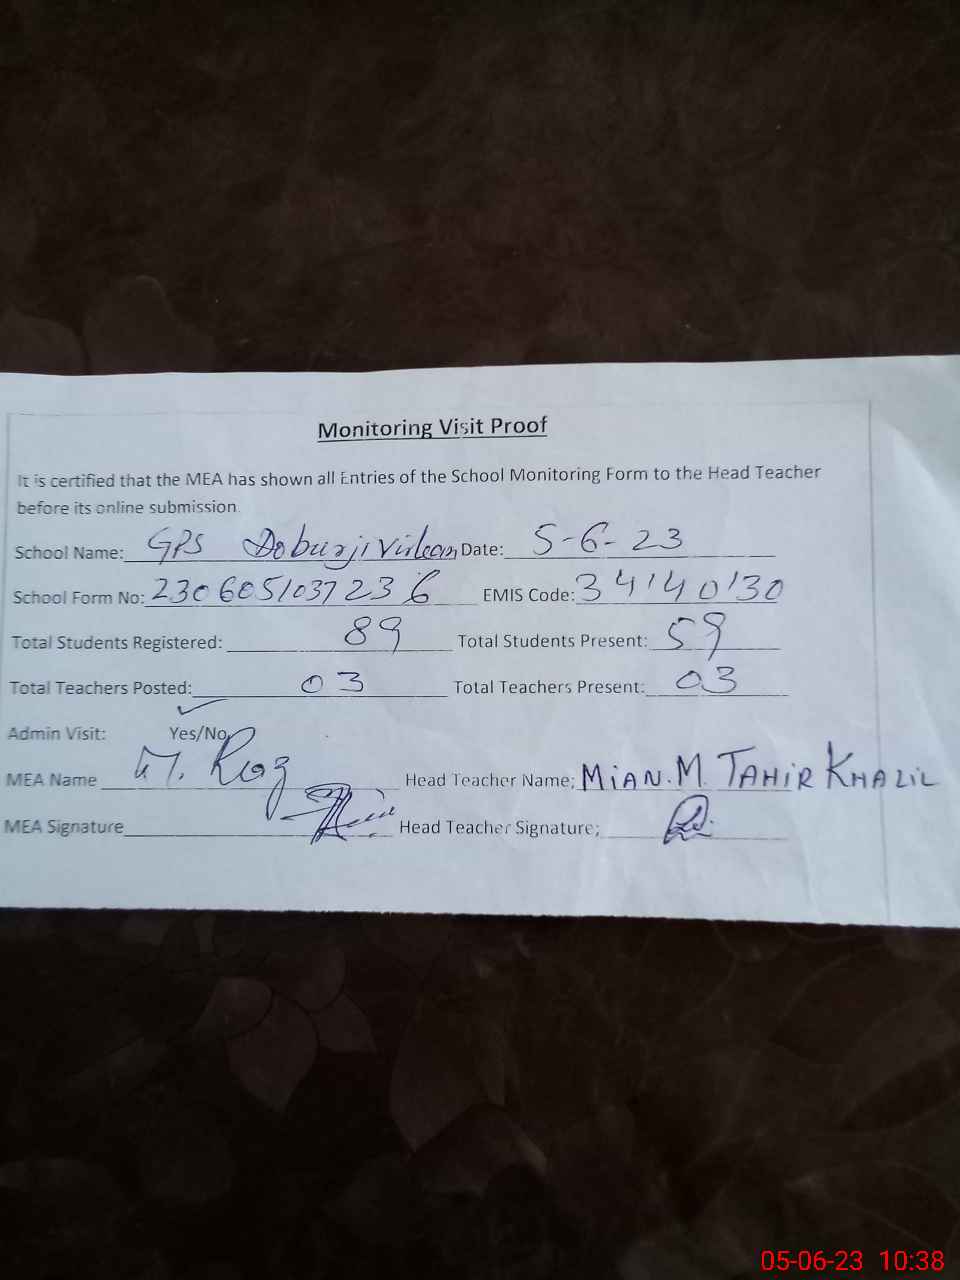 Monitoring Visit Proof
It is certified that the MEA has shown all Entries of the School Monitoring Form to the Head Teacher
before its online submission.
School Name: GPS Doburji Virkan Date: 5-6-23
School Form No: 2306051037236 EMIS Code: 34140130
Total Students Registered: 89 Total Students Present: 59
Total Teachers Posted: 03 Total Teachers Present: 03
Admin Visit: Yes/No
MEA Name M. Head Teacher Name; MIAN.M. TAHIR KHALIL
MEA Signature Head Teacher Signature;
05-06-23 10:38